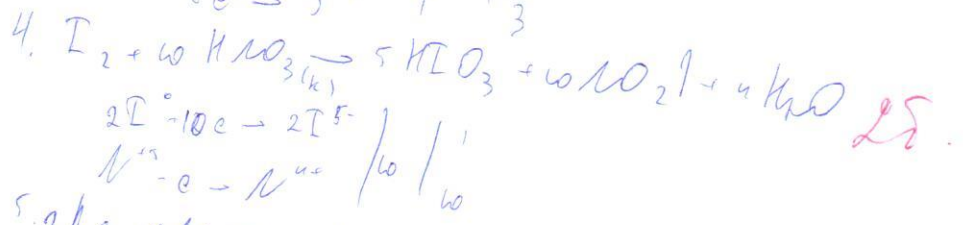 4. I₂ + 10 HNO₃(к) → 5 HIO₃ + 10 NO₂↑ + 4 H₂O 2б.
2I⁰ - 10e → 2I⁵⁻ | 1
N⁺⁵ - e → N⁴⁺ | 10 | 10
5.